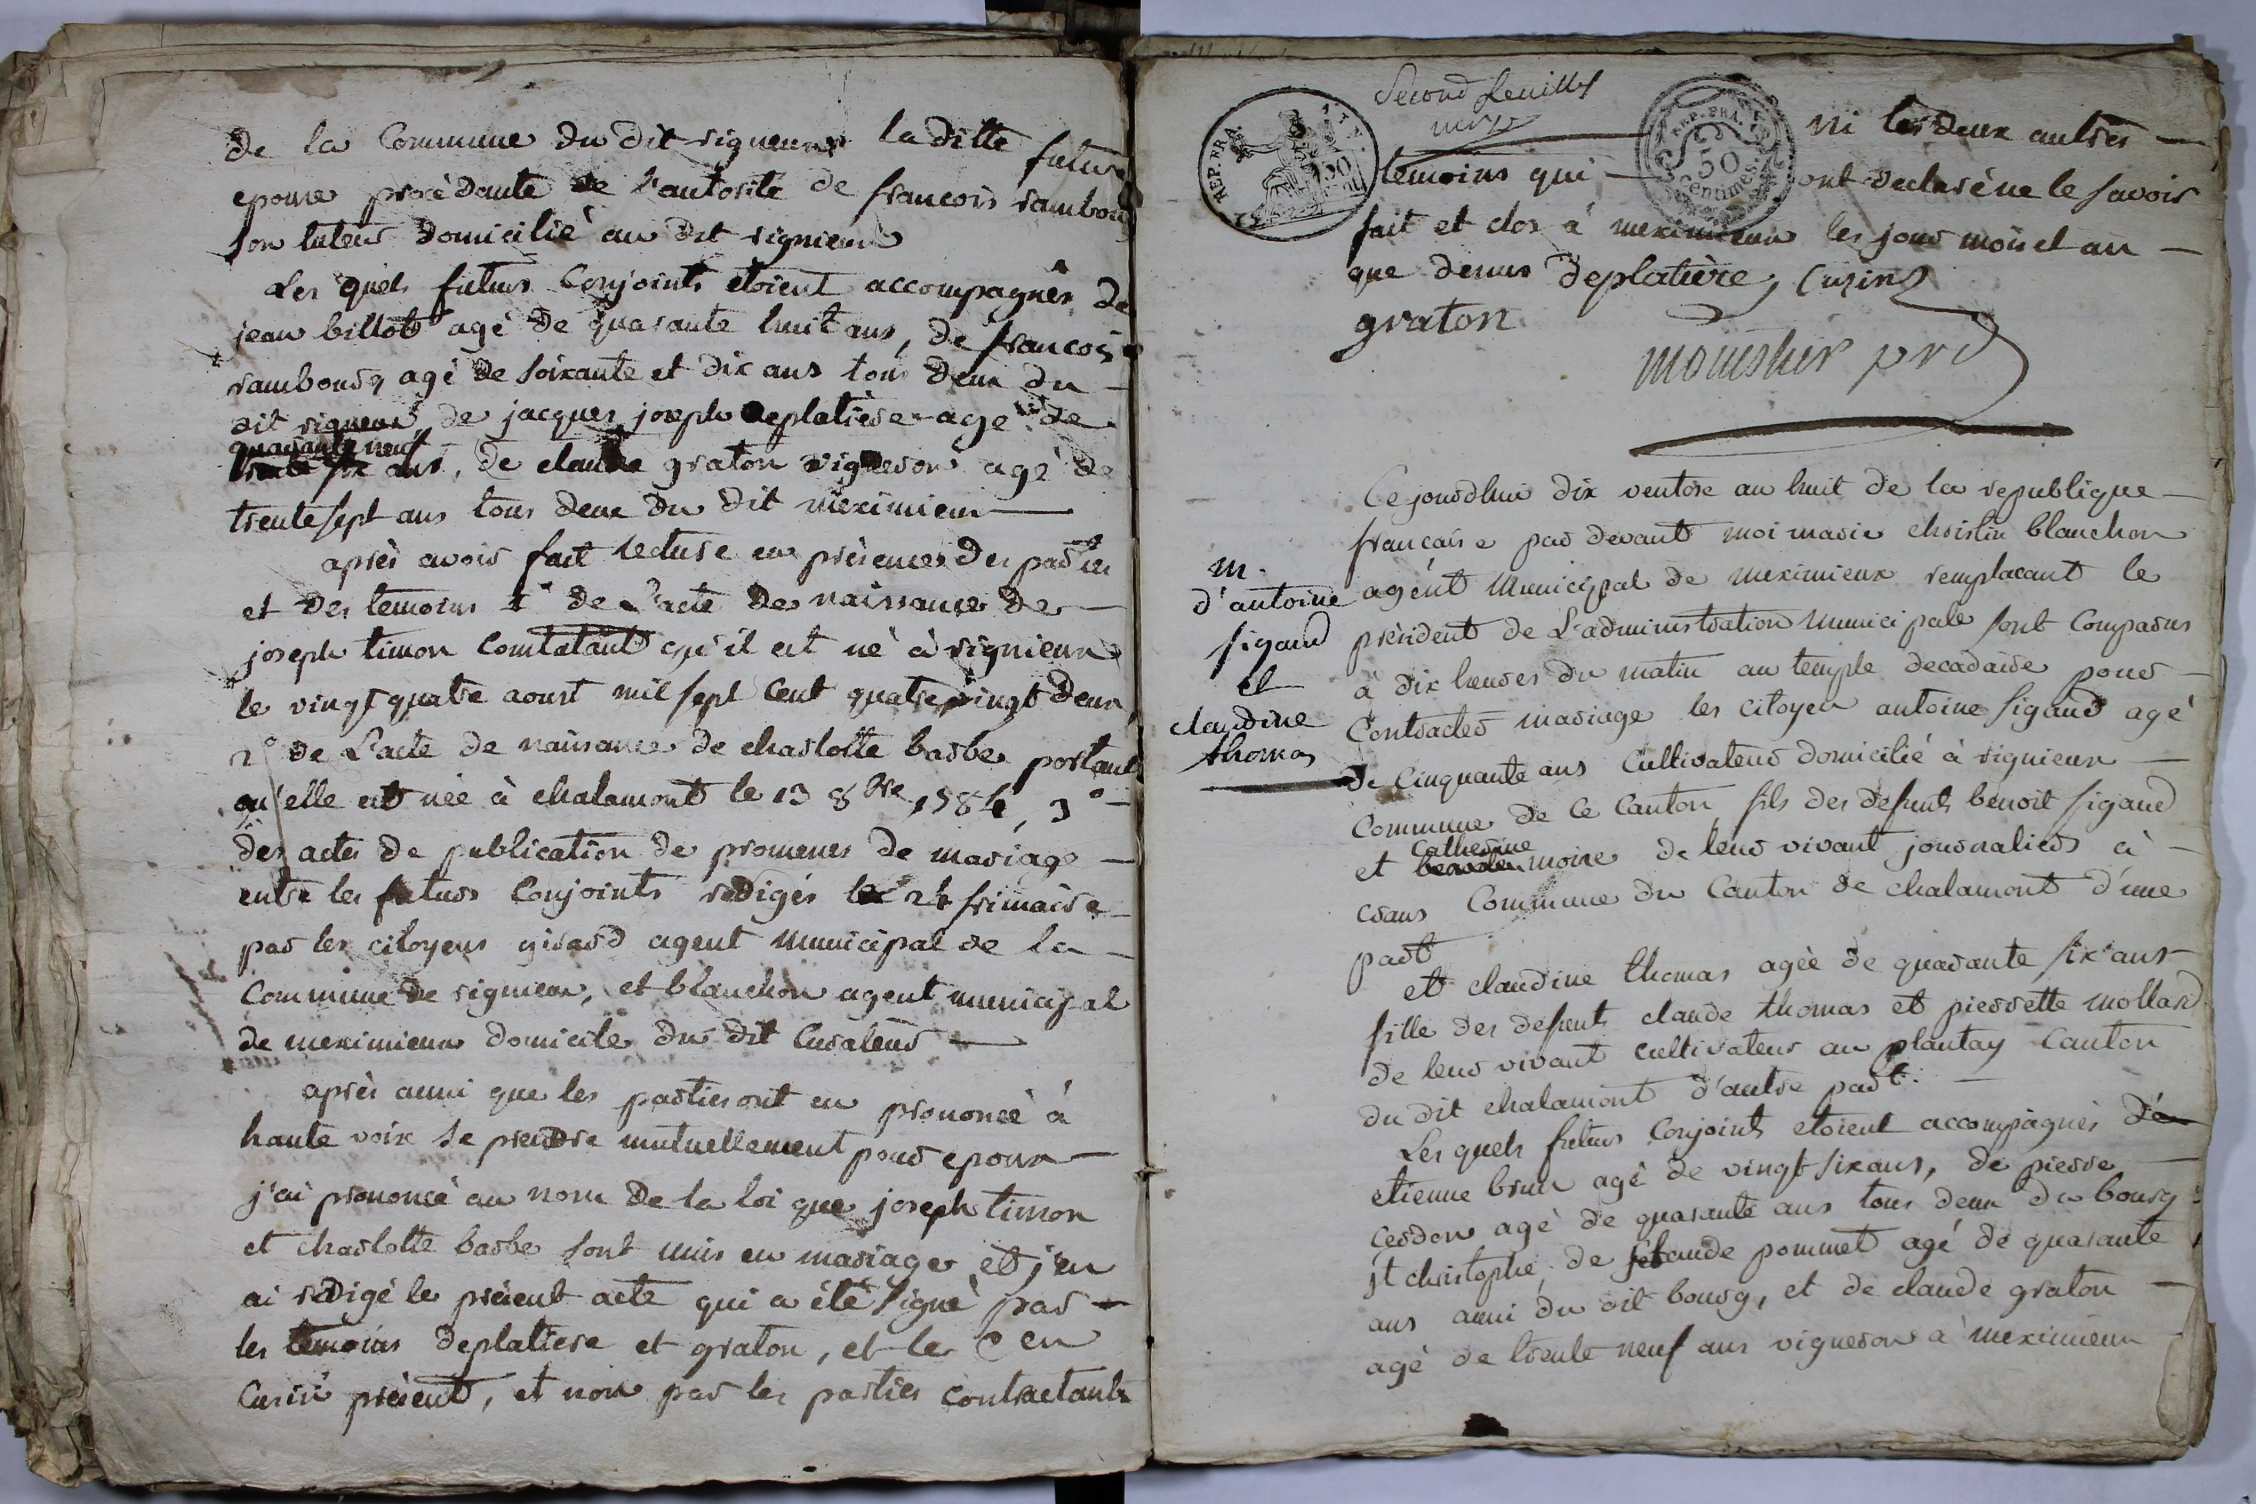 de la Commune du dit rigneux la ditte future
epouse procédante de l'autorité de francois rambourg
son tuteur domicilié au dit rignieux
Les quels futurs Conjoints etoient accompagnés de
jean billot agé de quarante huit ans, de francois
rambourg agé de soixante et dix ans tous deux du
dit rigneux, de jacques joseph deplatière agé de
quarante neuf
trente six ans, de claude graton vigneron agé de
trente sept ans tous deux du dit meximieux
après avoir fait lecture en présence des parties
et des temoins 1° de L'acte de naissance de
joseph timon Constatant qu'il est né à rignieux
le vingt quatre aoust mil sept cent quatre vingt deux,
2° de L'acte de naissance de charlotte barbe portant
qu'elle est née à chalamont le 13 8bre 1784, 3°
des actes de publication de promesses de mariage
entre les futurs Conjoints redigés le 24 frimaire
par les citoyens girard agent municipal de la
Commune de rignieux, et blanchon agent municipal
de meximieux domicile du dit Curateur
après aussi que les parties ont eu prononcé à
haute voix se prendre mutuellement pour epoux
j'ai prononcé au nom de la loi que joseph timon
et charlotte barbe sont unis en mariage et j'en
ai redigé le présent acte qui a été signé par
les temoins deplatiere et graton, et le Cen
Cusin présent, et non par les parties contractants
Second feuillet
verso
REP. FRA.
REP. FRA.
50
Centimes
ni les deux autres
temoins qui ont declaré ne le savoir
fait et clos à meximieux les jour mois et an
que dessus deplatière, Cuzin
graton
monthier prd
m.
d'antoine
sigaud
et
claudine
thomas
Ce jourd'hui dix ventose an huit de la republique
francaise par devant moi marie christin blanchon
agent municipal de meximieux remplacant le
président de L'administration municipale sont Comparus
à dix heures du matin au temple decadaire pour
Contracter mariage les citoyen antoine sigaud agé
de cinquante ans Cultivateur domicilié à rignieux
Commune de ce Canton, fils des defunts benoit sigaud
Catherine
et moine de leur vivant journaliers à
crans Commune du Canton de chalamont d'une
part
et claudine thomas agée de quarante six ans
fille des defunts claude thomas et pierrette mollard
de leur vivant cultivateur au plantay Canton
du dit chalamont d'autre part.
Les quels futurs Conjoints etoient accompagnés de
etienne brun agé de vingt six ans, de pierre
cerdon agé de quarante ans tous deux du bourg
st christophe, de claude pommet agé de quarante
ans aussi du dit bourg, et de claude graton
agé de trente neuf ans vigneron à meximieux